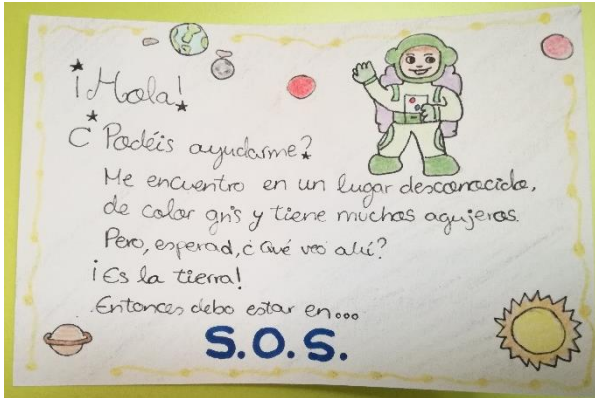 ¡Hola!
¿Podéis ayudarme?
Me encuentro en un lugar desconocido,
de color gris y tiene muchos agujeros.
Pero, esperad, ¿Qué veo ahí?
¡Es la tierra!
Entonces debo estar en...
S.O.S.